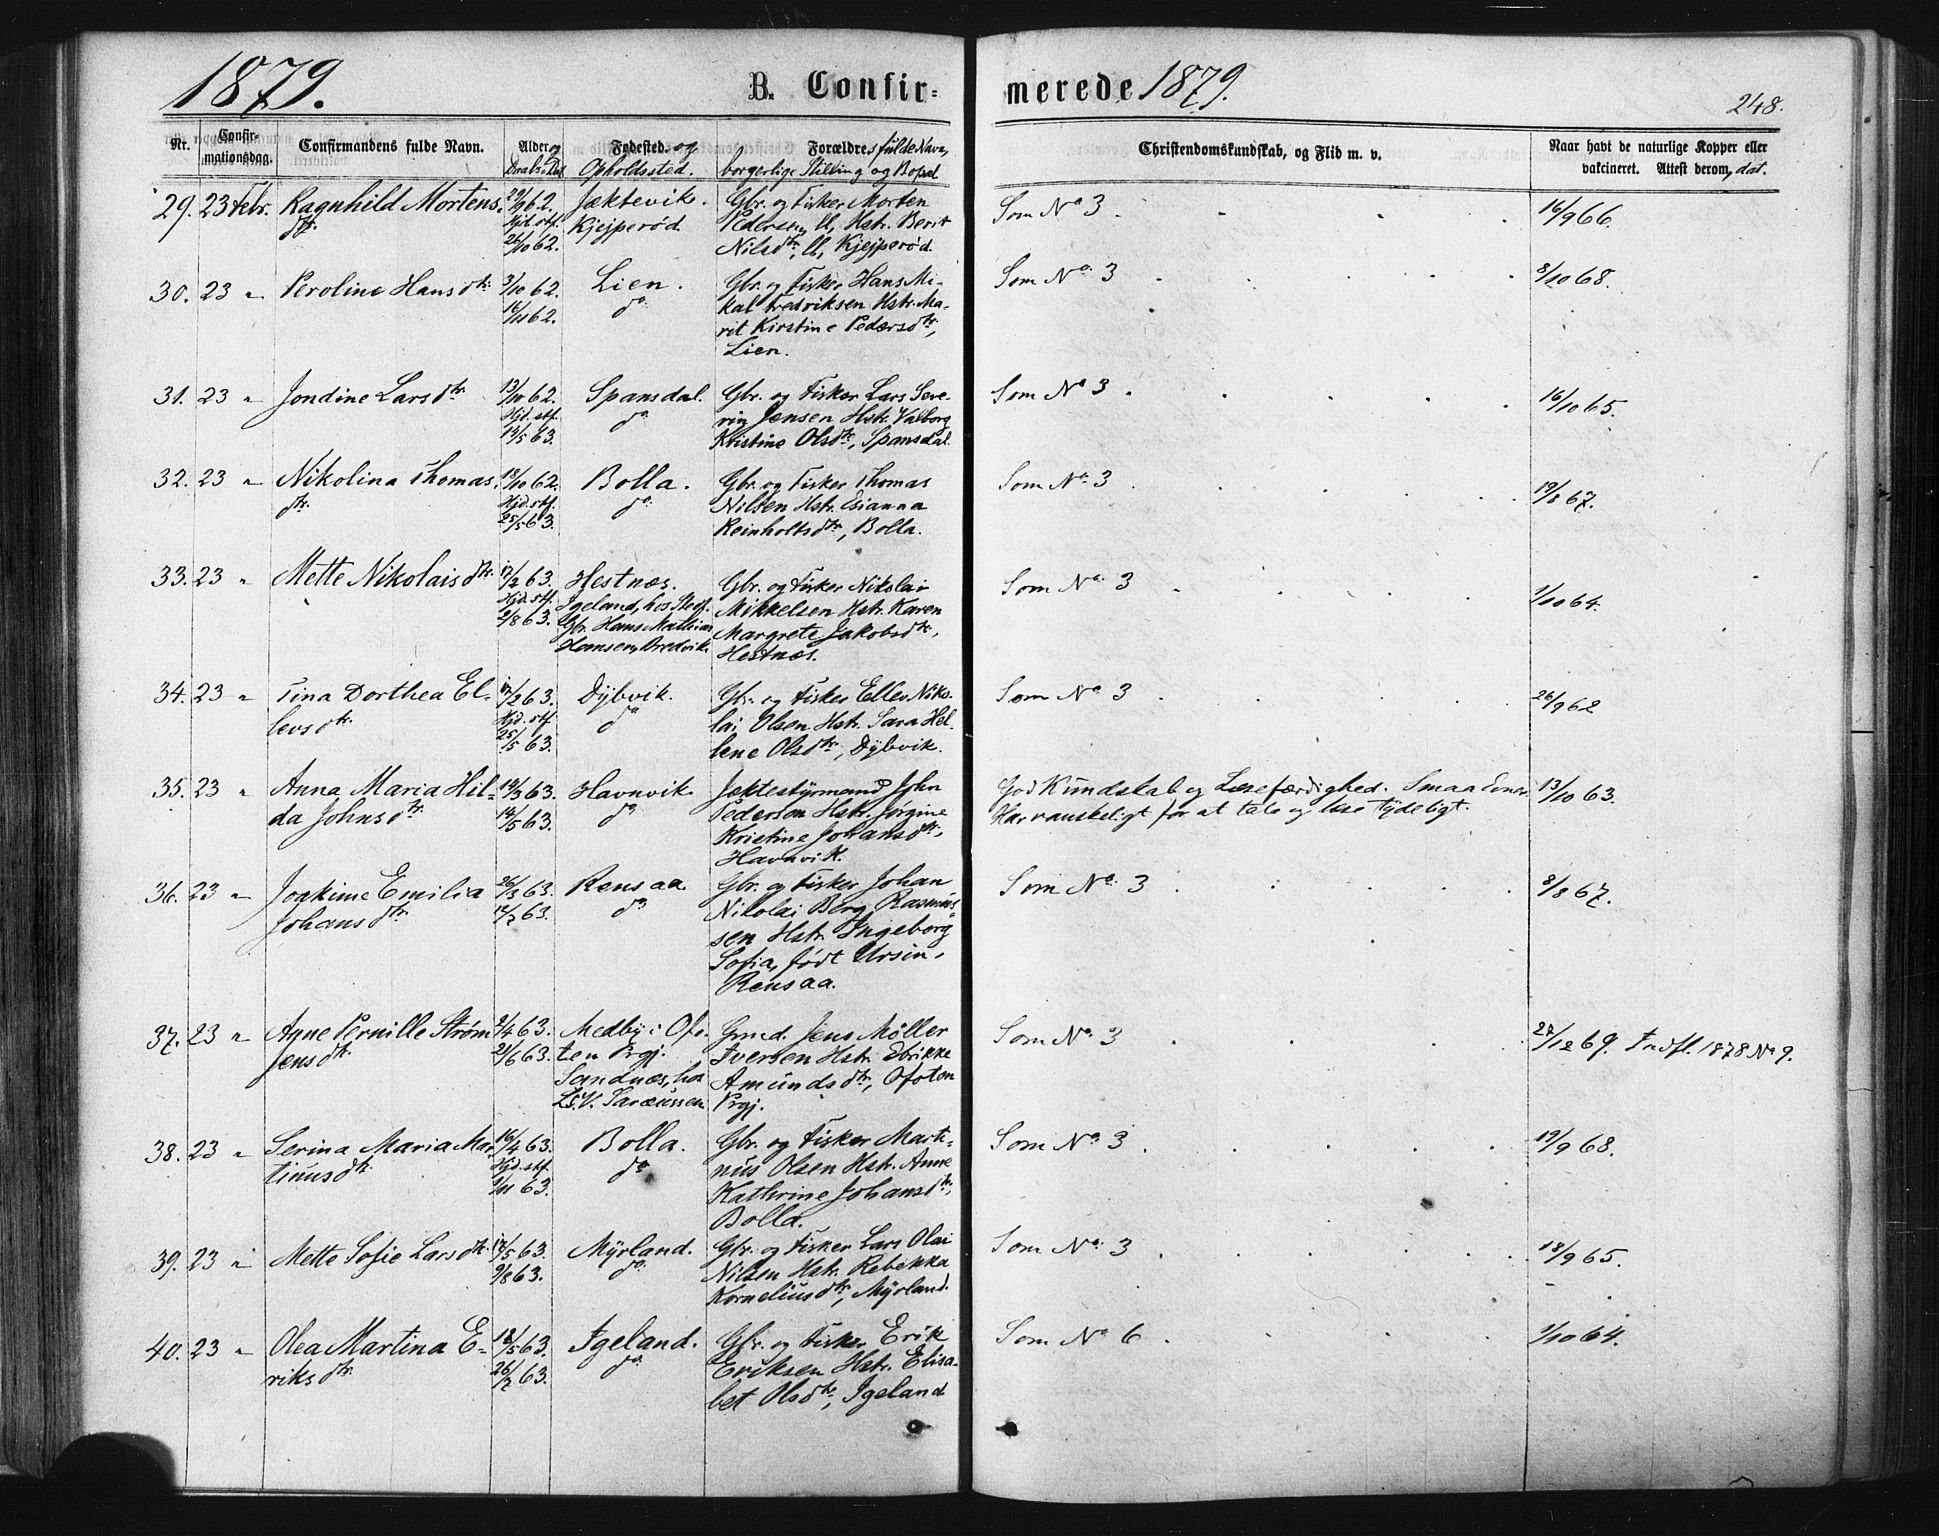 1879. B. Confir-merede 1879.
248.
Nr. Confir-mationsdag. Confirmandens fulde Navn. Alder og Daabs Dat. Fødested. og Opholdssted. Forældres fulde Navn, borgerlige Stilling og Bopæl Christendomskundskab, og Flid m. v. Naar havt de naturlige Kopper eller vakcineret. Attest derom, dat.
29. 23 Febr. Ragnhild Mortens- 29/9 62. Jæktevik. Gbr. og Fisker Morten Som No 3 16/9 66.
dtr. Hjd. stf. Kjejperød. Pedersen, Hstr. Berit
26/10 62. Nilsdtr, Kjejperød.
30. 23 " Peroline Hansdtr. 3/10 62. Lien. Gbr. og Fisker Hans Mi- Som No. 3 8/10 68.
16/11 62. do. kal Fredriksen Hstr. Ma-
rit Kirstine Pedersdtr,
Lien.
31. 23 " Jondine Larsdtr. 13/10 62. Spansdal. Gbr. og Fisker Lars Seve- Som No 3 16/10 65.
Hjd. stf. do. rin Jensen Hstr. Valborg
14/5 63. Kristine Olsdtr, Spansdal.
32. 23 " Nikolina Thomas- 18/10 62. Bolla. Gbr. og Fisker Thomas Som No. 3 19/8 67.
dtr. Hjd. stf. do. Nilsen Hstr. Esianna
25/5 63. Reinholtsdtr, Bolla.
33. 23 " Mette Nikolaisdtr. 12/2 63. Hestnæs. Gbr. og Fisker Nikolai Som No. 3 1/10 64.
Hjd. stf. Igeland, hos Stedf. Mikkelsen Hstr. Karen
2/8 63. Gbr. Hans Mathias Margrete Jakobsdtr,
Hansen, Bredvik. Hestnæs.
34. 23 " Tina Dorthea El- 12/2 63. Dÿbvik. Gbr. og Fisker Ellev Niko- Som No 3 26/9 62
levsdtr. Hjd. stf. do lai Olsen Hstr. Sara Hel-
25/5 63. lene Olsdtr, Dÿbvik.
35. 23 " Anna Maria Hil- 19/3 63. Havnvik. Jæktestÿrmand John God Kundskab og Læsefærdighed. Smaa Evner. 13/10 63.
da Johnsdtr. 14/5 63. do Pedersen Hstr. Jørgine Har vanskeligt for at tale og læse tydeligt.
Kristine Johansdtr,
Havnvik.
36. 23 " Joakime Emilia 26/3 63. Rensaa. Gbr. og Fisker Johan Som No. 3 8/8 67.
Johansdtr. 12/7 63. do Nikolai Berg Rasmus-
sen Hstr. Ingeborg
Sofia, født Ursin,
Rensaa.
37. 23 " Agne Pernille Strøm 2/4 63. Medby i Ofo- Grmd. Jens Möller Som No. 3 27/12 69. Indfl. 1878 No 9.
Jensdtr. 21/6 63. ten Prgj. Iversen Hstr. Ebrikke
Sandnæs, hos Amundsdtr, Ofoten
L. V. Saræussen Prgj.
38. 23 " Serina Maria Mar- 16/4 63. Bolla. Gbr. og Fisker Marti- Som No. 3 19/9 68.
tinusdtr. Hjd. stf. do nus Olsen Hstr. Anne
1/11 63. Kathrine Johansdtr,
Bolla.
39. 23 " Mette Sofie Larsdtr. 12/5 63. Mÿrland. Gbr. og Fisker Lars Olai Som No. 3 18/9 65.
9/8 63. do. Nilsen Hstr. Rebekka
Korneliusdtr, Mÿrland.
40. 23 " Olea Martina E- 18/5 63. Igeland. Gbr. og Fisker Erik Som No 6 1/10 64.
riksdtr. 26/7 63. do. Eriksen Hstr. Elisa-
bet Olsdtr, Igeland